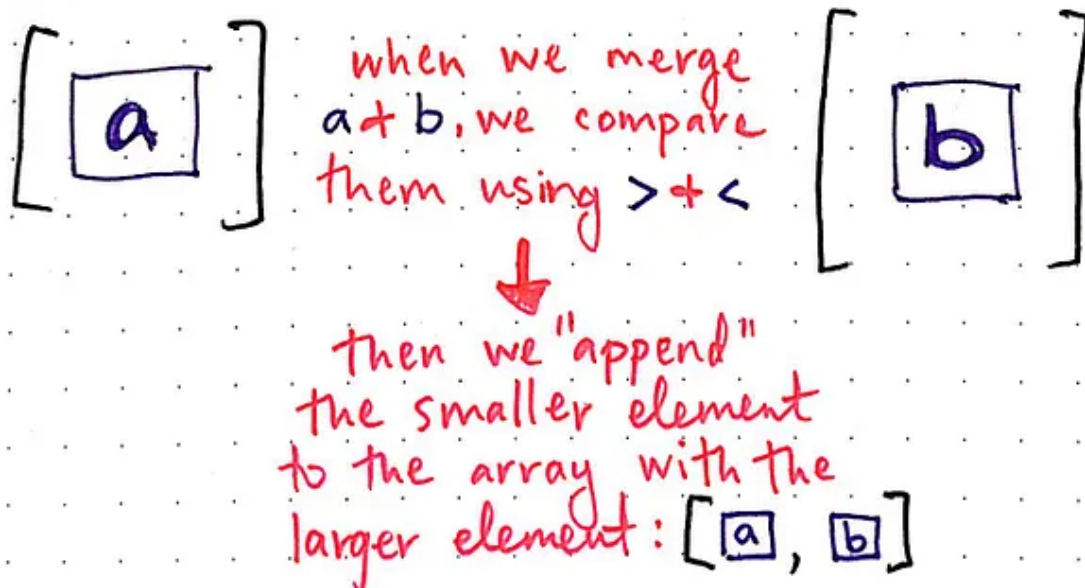 [ a ]
when we merge
a + b, we compare
them using > + <
[ b ]
then we "append"
the smaller element
to the array with the
larger element: [ a , b ]